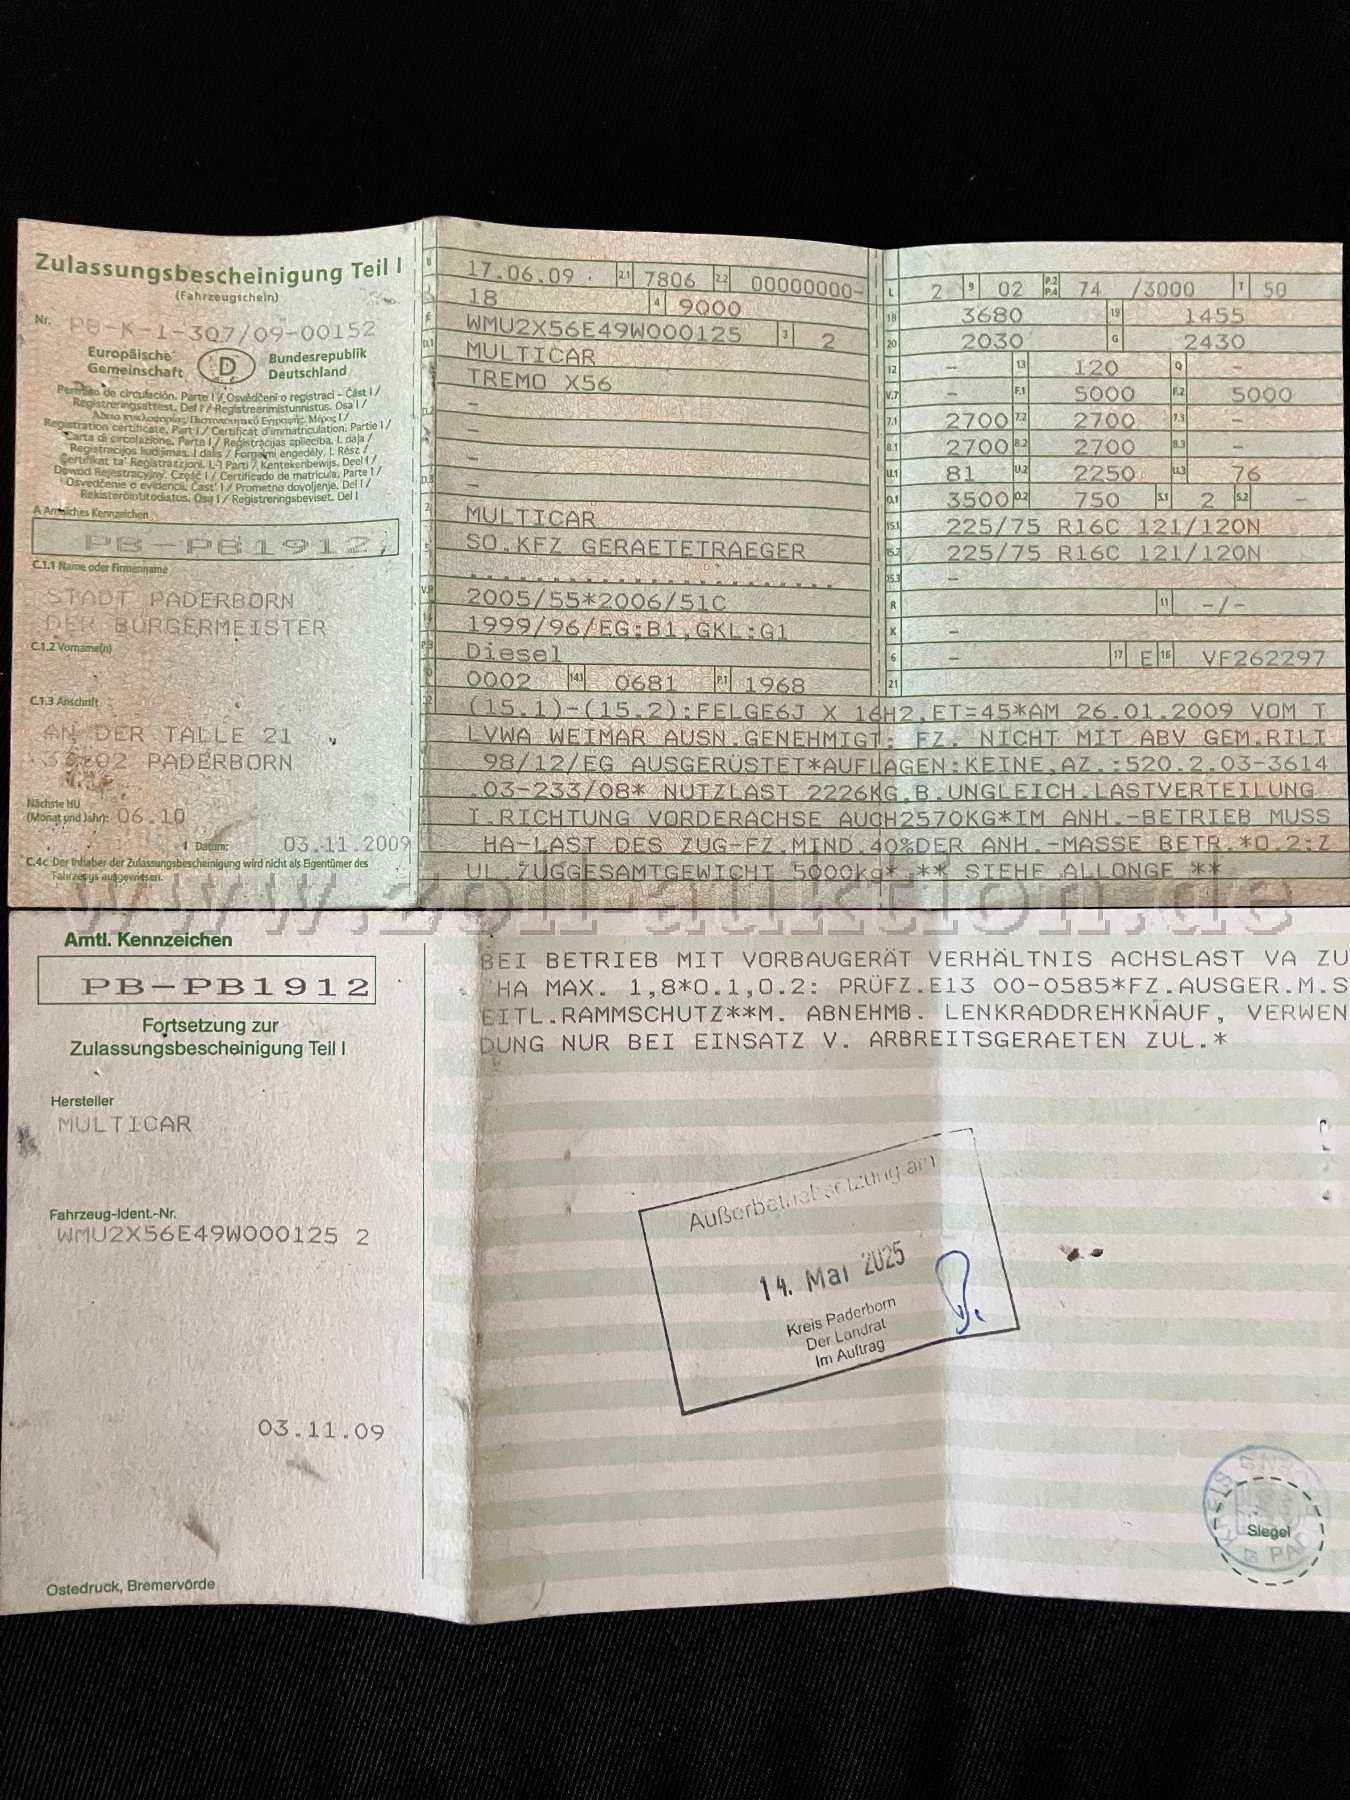 Zulassungsbescheinigung Teil I
(Fahrzeugschein)
Nr. PB-K-1-307/09-00152
Europäische Gemeinschaft
D
Bundesrepublik Deutschland
Permiso de circulación. Parte I / Osvědčení o registraci - Část I /
Registreringsattest. Del I / Registreerimistunnistus. Osa I /
Άδεια κυκλοφορίας Πιστοποιητικό Εγγραφής Μέρος I /
Registration certificate. Part I / Certificat d'immatriculation. Partie I /
Carta di circolazione. Parte I / Reģistrācijas apliecība. I. daļa /
Registracijos liudijimas. I dalis / Forgalmi engedély. I. Rész /
Ċertifikat ta' Reġistrazzjoni. L-1 Parti / Kentekenbewijs. Deel I /
Dowód Rejestracyjny. Część I / Certificado de matrícula. Parte I /
Osvedčenie o evidencii. Časť I / Prometno dovoljenje. Del I /
Rekisteröintitodistus. Osa I / Registreringsbeviset. Del I
A Amtliches Kennzeichen
PB-PB1912
C.1.1 Name oder Firmenname
STADT PADERBORN
DER BÜRGERMEISTER
C.1.2 Vorname(n)
C.1.3 Anschrift
AN DER TALLE 21
PADERBORN
Nächste HU
(Monat und Jahr): 06.10
I Datum: 03.11.2009
C.4c Der Inhaber der Zulassungsbescheinigung wird nicht als Eigentümer des
Fahrzeugs ausgewiesen.
B 17.06.09 2.1 7806 2.2 00000000-
J 18 4 9000
E WMU2X56E49W000125 3 2
D.1 MULTICAR
TREMO X56
D.2 -
-
-
D.3 -
2 MULTICAR
5 SO.KFZ GERAETETRAEGER
V.9 2005/55*2006/51C
14 1999/96/EG;B1,GKL:G1
P.3 Diesel
10 0002 14.1 0681 P.1 1968
L 2 9 02 P.2 P.4 74 /3000 T 50
18 3680 19 1455
20 2030 G 2430
12 - 13 120 Q -
V.7 - F.1 5000 F.2 5000
7.1 2700 7.2 2700 7.3 -
8.1 2700 8.2 2700 8.3 -
U.1 81 U.2 2250 U.3 76
O.1 3500 O.2 750 S.1 2 S.2 -
15.1 225/75 R16C 121/120N
15.2 225/75 R16C 121/120N
15.3 -
R 11 -/-
K -
6 - 17 E 16 VF262297
21
22 (15.1)-(15.2):FELGE6J X 16H2,ET=45*AM 26.01.2009 VOM T
LVWA WEIMAR AUSN.GENEHMIGT: FZ. NICHT MIT ABV GEM.RILI
98/12/EG AUSGERÜSTET*AUFLAGEN:KEINE,AZ.:520.2.03-3614
.03-233/08* NUTZLAST 2226KG.B.UNGLEICH.LASTVERTEILUNG
I.RICHTUNG VORDERACHSE AUCH2570KG*IM ANH.-BETRIEB MUSS
HA-LAST DES ZUG-FZ.MIND.40%DER ANH.-MASSE BETR.*0.2:Z
UL.ZUGGESAMTGEWICHT 5000kg* ** SIEHE ALLONGE **
www.zoll-auktion.de
Amtl. Kennzeichen
PB-PB1912
Fortsetzung zur
Zulassungsbescheinigung Teil I
Hersteller
MULTICAR
Fahrzeug-Ident.-Nr.
WMU2X56E49W000125 2
03.11.09
Ostedruck, Bremervörde
BEI BETRIEB MIT VORBAUGERÄT VERHÄLTNIS ACHSLAST VA ZU
HA MAX. 1,8*0.1,0.2: PRÜFZ.E13 00-0585*FZ.AUSGER.M.S
EITL.RAMMSCHUTZ**M. ABNEHMB. LENKRADDREHKNAUF, VERWEN
DUNG NUR BEI EINSATZ V. ARBREITSGERAETEN ZUL.*
Außerbetriebsetzung am
14. Mai 2025
Kreis Paderborn
Der Landrat
Im Auftrag
KREIS
Siegel